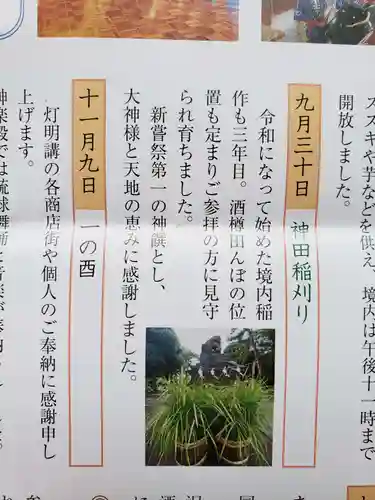 ススキや芋などを供え、境内は午後十一時まで
開放しました。
九月三十日 神田稲刈り
令和になって始めた境内稲
作も三年目。酒樽田んぼの位
置も定まりご参拝の方に見守
られ育ちました。
新嘗祭第一の神饌とし、
大神様と天地の恵みに感謝しました。
十一月九日 一の酉
灯明講の各商店街や個人のご奉納に感謝申し
上げます。
神楽殿では琉球舞踊と音楽が奉納